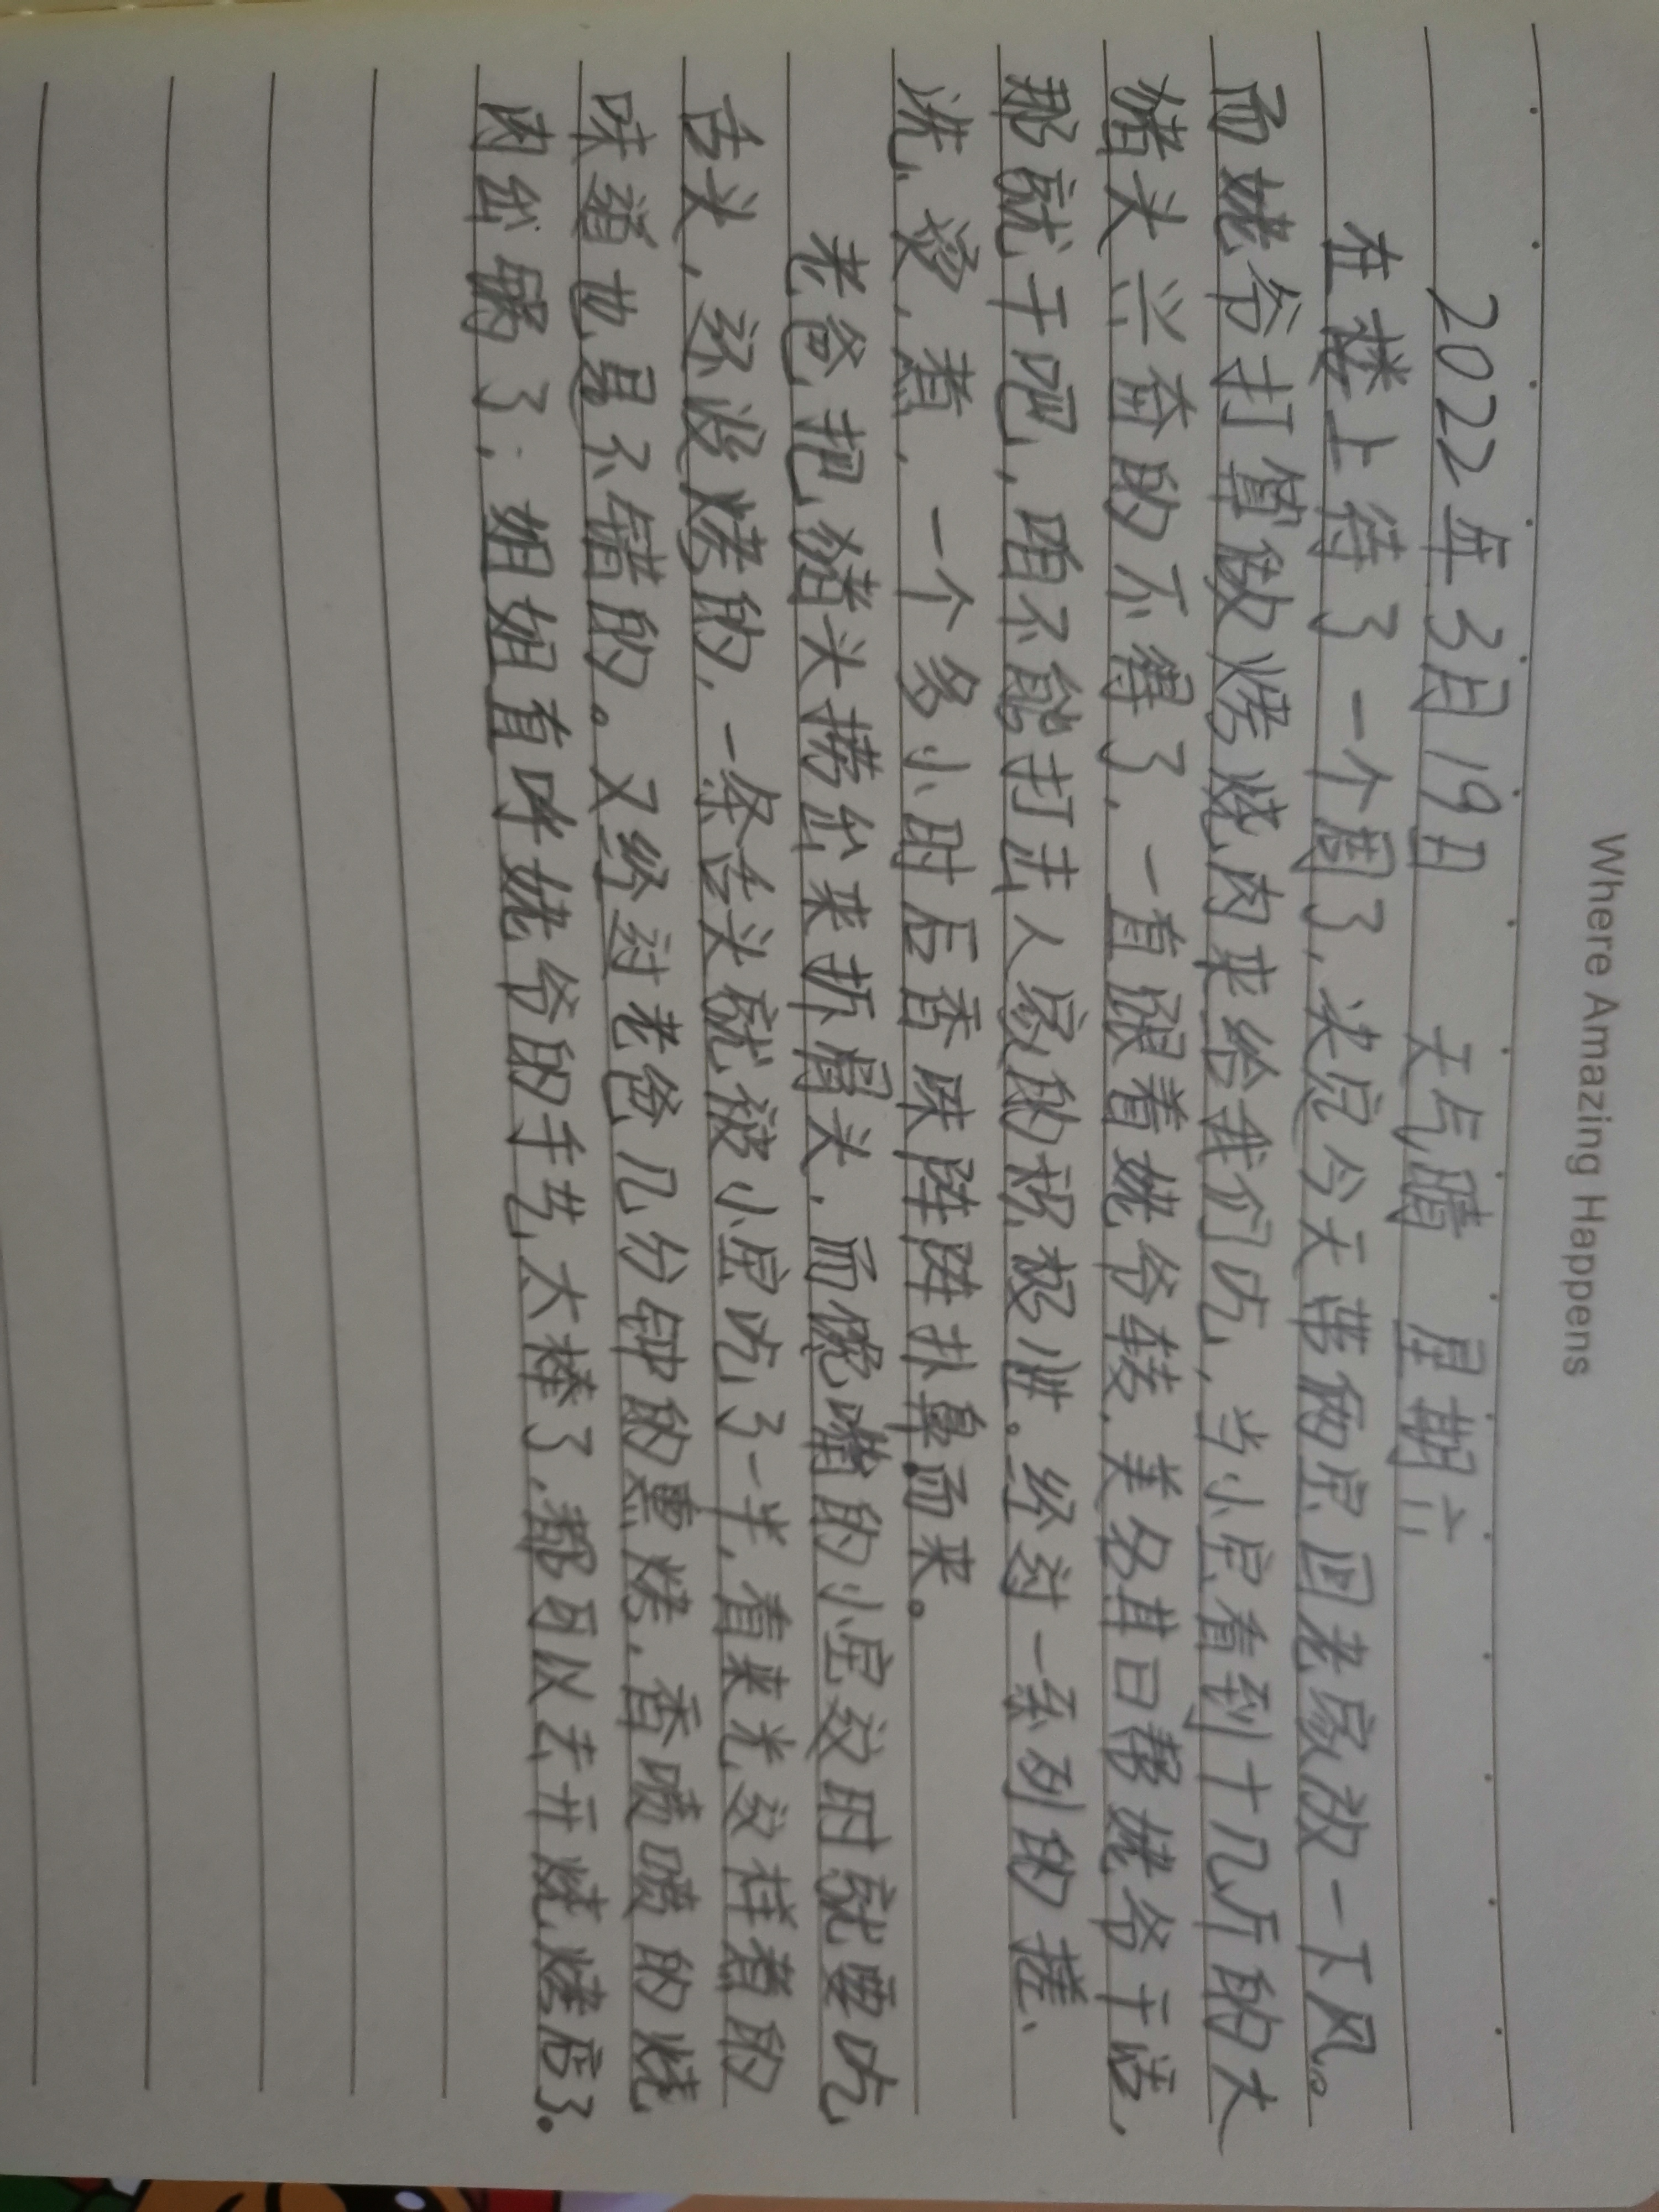 Where Amazing Happens
2022年3月19日 天气晴 星期六
在楼上待了一个周了,决定今天带俩宝回老家放一下风。
而姥爷打算做烤烧肉来给我们吃,当小宝看到十几斤的大
猪头兴奋的不得了,一直跟着姥爷转,美名其曰帮姥爷干活,
那就干吧,咱不能打击人家的积极性。经过一系列的搓、
洗、烫、煮,一个多小时后香味阵阵扑鼻而来。
老爸把猪头捞出来拆骨头,而馋嘴的小宝这时就要吃
舌头,还没烤的,一条舌头就被小宝吃了一半,看来光这样煮的
味道也是不错的。又经过老爸几分钟的熏烤,香喷喷的烧
肉出锅了;姐姐直呼姥爷的手艺太棒了,都可以去开烧烤店了。